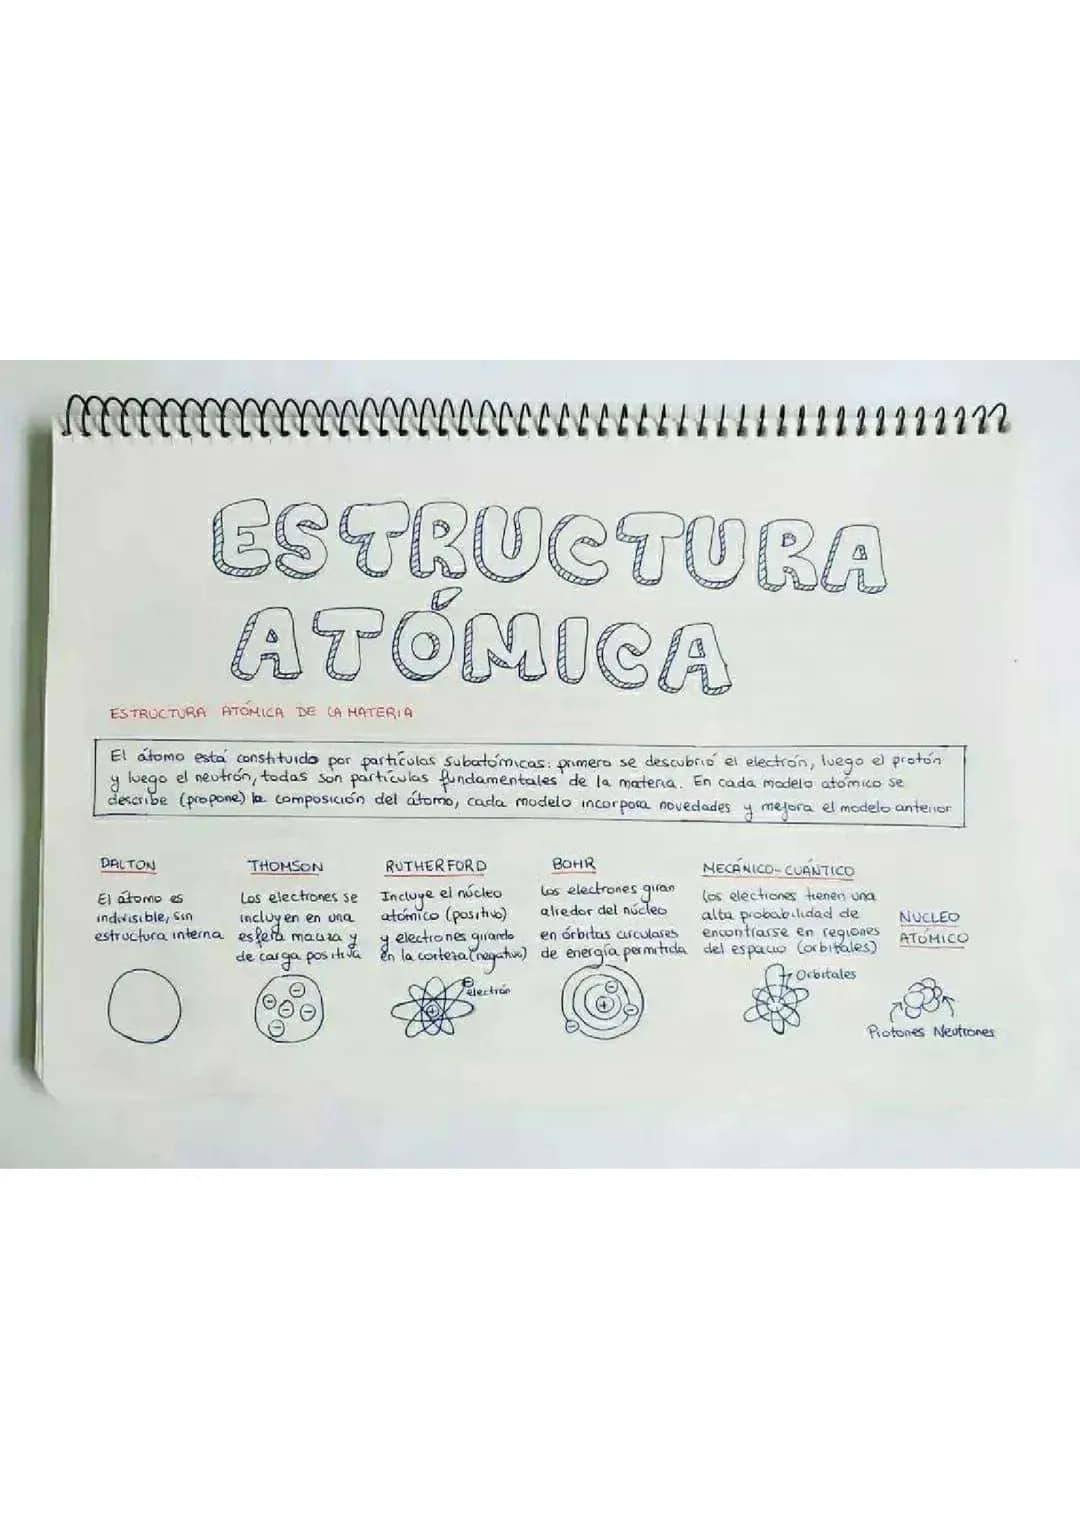 ESTRUCTURA
ATÓMICA
ESTRUCTURA ATÓMICA DE LA MATERIA
El átomo está constituido por partículas subatómicas: primero se descubrió el electrón, luego el protón
y luego el neutrón, todas son partículas fundamentales de la materia. En cada modelo atómico se
describe (propone) la composición del átomo, cada modelo incorpora novedades y mejora el modelo anterior
DALTON
El átomo es
indivisible, sin
estructura interna
THOMSON
Los electrones se
incluyen en una
esfera maciza y
de carga positiva
RUTHERFORD
Incluye el núcleo
atómico (positivo)
y electrones girando
en la corteza (negativa)
electrón
BOHR
Los electrones giran
alredor del núcleo
en órbitas circulares
de energía permitida
MECÁNICO-CUÁNTICO
Los electrones tienen una
alta probabilidad de
encontrarse en regiones
del espacio (orbitales)
Orbitales
NUCLEO
ATÓMICO
Protones Neutrones